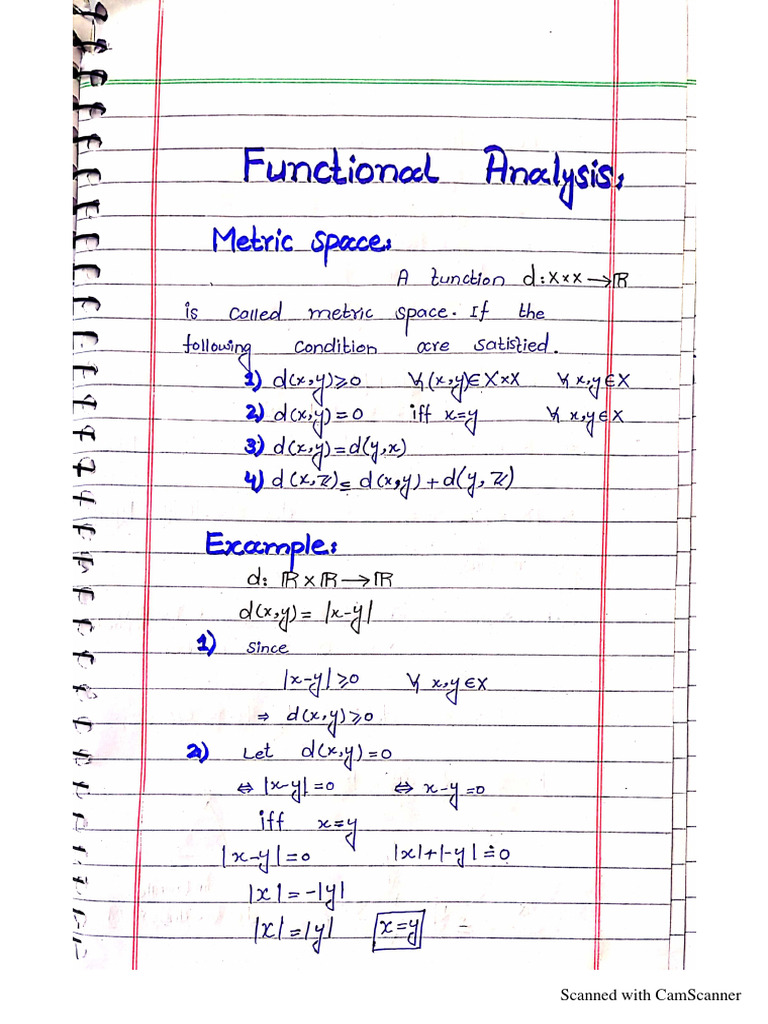 Functional Analysis:
Metric space:
A function d: X×X → ℝ
is called metric space. If the
following condition are satisfied.
1) d(x,y)≥0 ∀ (x,y)∈ X×X ∀ x,y∈X
2) d(x,y)=0 iff x=y ∀ x,y∈X
3) d(x,y)=d(y,x)
4) d(x,z)≤ d(x,y)+d(y,z)
Example:
d: ℝ×ℝ → ℝ
d(x,y)= |x-y|
1) Since
|x-y|≥0 ∀ x,y∈X
⇒ d(x,y)≥0
2) Let d(x,y)=0
⇔ |x-y|=0 ⇔ x-y=0
iff x=y
|x-y|=0 |x|+|-y|=0
|x|=-|y|
|x|=|y| x=y
Scanned with CamScanner